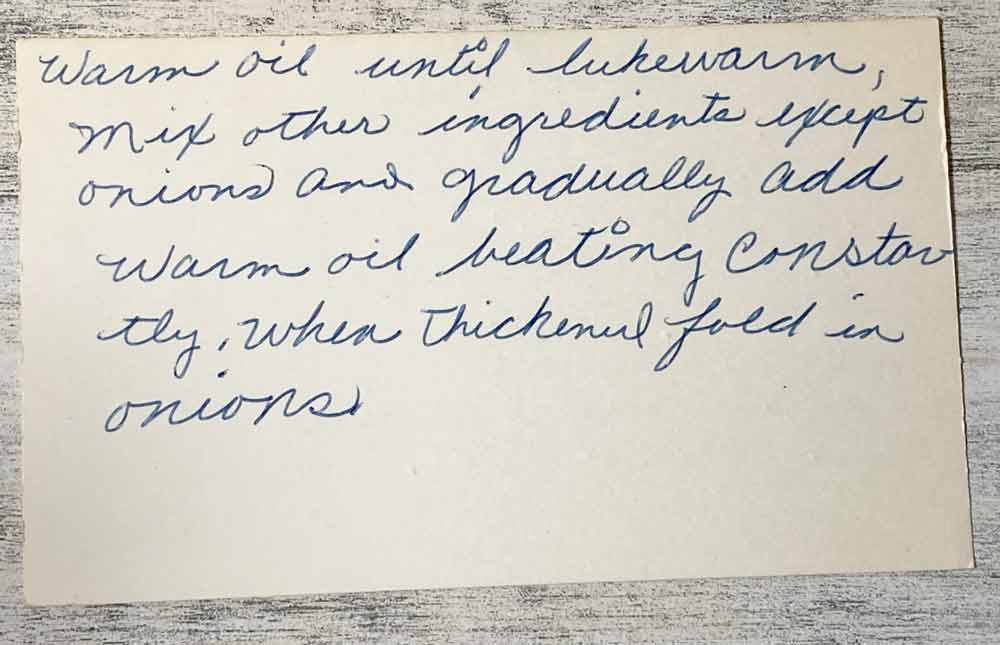 Warm oil until lukewarm,
Mix other ingredients except
onions and gradually add
warm oil beating constan
tly. When thickened fold in
onions.